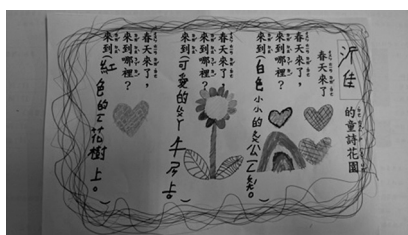 沂佳的童詩花園
春天來了
春天來了，
來到哪裡？
來到(白色小小的
春天來了，
來到哪裡？
來到(可愛的 上。)
春天來了，
來到哪裡？
來到(紅色的 花樹上。)